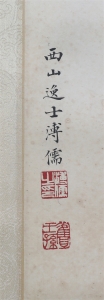 西山逸士溥儒
舊王孫